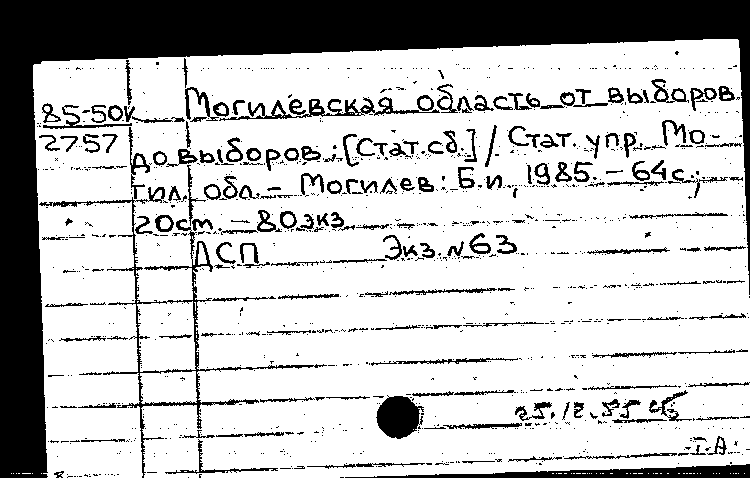 85-50к Могилевская область от выборов
2757
до выборов : [Стат. сб.] / Стат. упр. Мо-
гил. обл. – Могилев : Б.и, 1985. – 64с.;
20см. – 80экз
ДСП Экз. №63
25.12.85
Т.А.